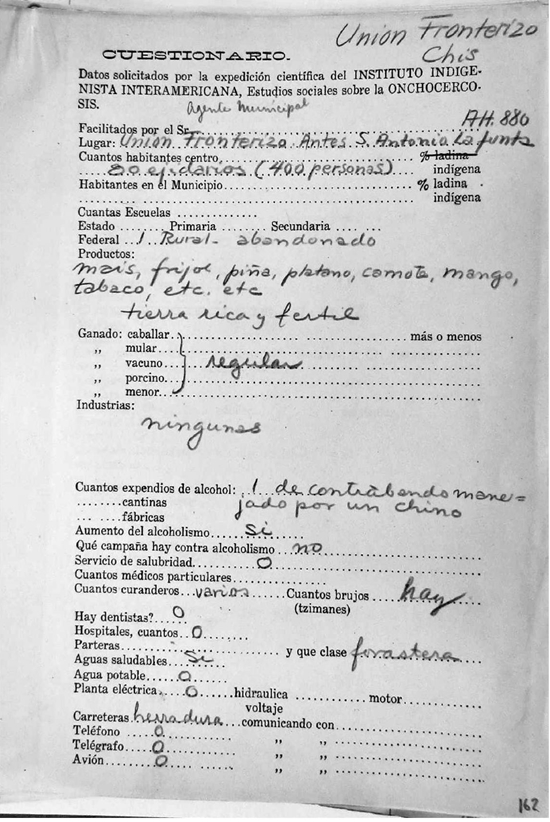 Union Fronterizo
Chis
CUESTIONARIO.
Datos solicitados por la expedición científica del INSTITUTO INDIGE-
NISTA INTERAMERICANA, Estudios sociales sobre la ONCHOCERCO-
SIS.
Agente Municipal
AH 880
Facilitados por el Sr.
Lugar: Union Fronterizo. Antes S. Antonio La Junta
Cuantos habitantes centro % ladina
80 ejidatarios (400 personas) indígena
Habitantes en el Municipio % ladina
indígena
Cuantas Escuelas
Estado Primaria Secundaria
Federal 1 Rural - abandonado
Productos:
mais, frijol, piña, platano, camote, mango,
tabaco, etc. etc
tierra rica y fertil
Ganado: caballar más o menos
„ mular
„ vacuno regular
„ porcino
„ menor
Industrias:
ningunas
Cuantos expendios de alcohol: 1 de contrabando mane=
cantinas jado por un chino
fábricas
Aumento del alcoholismo Si
Qué campaña hay contra alcoholismo no
Servicio de salubridad O
Cuantos médicos particulares
Cuantos curanderos varios Cuantos brujos hay
(tzimanes)
Hay dentistas? O
Hospitales, cuantos O
Parteras y que clase forastera
Aguas saludables Si
Agua potable O
Planta eléctrica O hidraulica motor
voltaje
Carreteras herradura comunicando con
Teléfono O „ „
Telégrafo O „ „
Avión O „ „
„ „
162